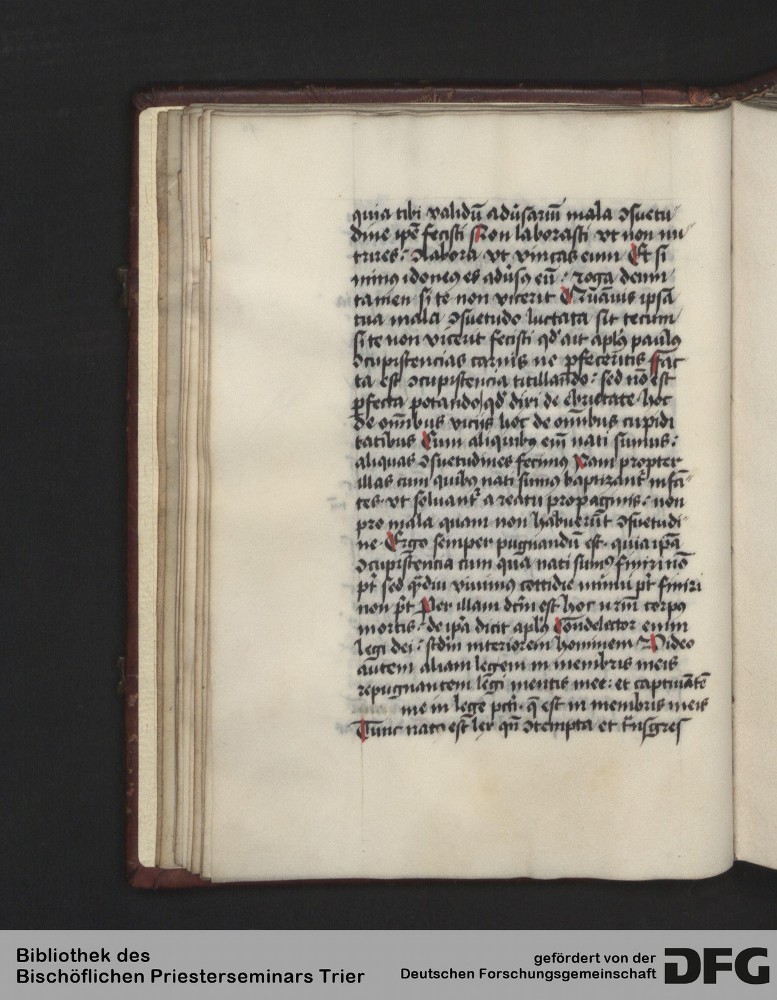 quia tibi validū adūsariū mala ɔsuetu
dine ipē fecisti Non laborasti vt non nu
trires: Labora vt vincas eum Et si
minus idoneus es adūsus eū: roga deum
tamen si te non vicerit Quāuis ipsā
tua mala ɔsuetudo luctata sit tecum
si te non vicerit fecisti qd ait aplus paulus
ɔcupiscencias carnis ne pfeceritis Fac
ta est ɔcupiscencia titillando: sed nō est
pfecta potando qd dixi de ebrietate hoc
de omībus vicijs hoc de omībus cupidi
tatibus Cum aliquibus enī nati sumus:
aliquas ɔsuetudines fecimus Nam propter
illas cum quibus nati sumus baptizant infā
tes vt soluant a reatu propaginis: non
pro mala quam non habuerūt ɔsuetudi
ne Ergo semper pugnandū est quia ipā
ɔcupiscencia cum qua nati sumus finiri nō
pt sed qdiu viuimus cottidie minui pt finiri
non pt Per illam dcm est hoc nrm corpus
mortis: de ipa dicit aplus Condelector enim
legi dei: scdm interiorem hominem Video
autem aliam legem in membris meis
repugnantem legi mentis mee: et captiuātē
me in lege pcti q est in membris meis
Tunc nata est lex qn ɔtempta et trnsgres
Bibliothek des
Bischöflichen Priesterseminars Trier
gefördert von der
Deutschen Forschungsgemeinschaft DFG